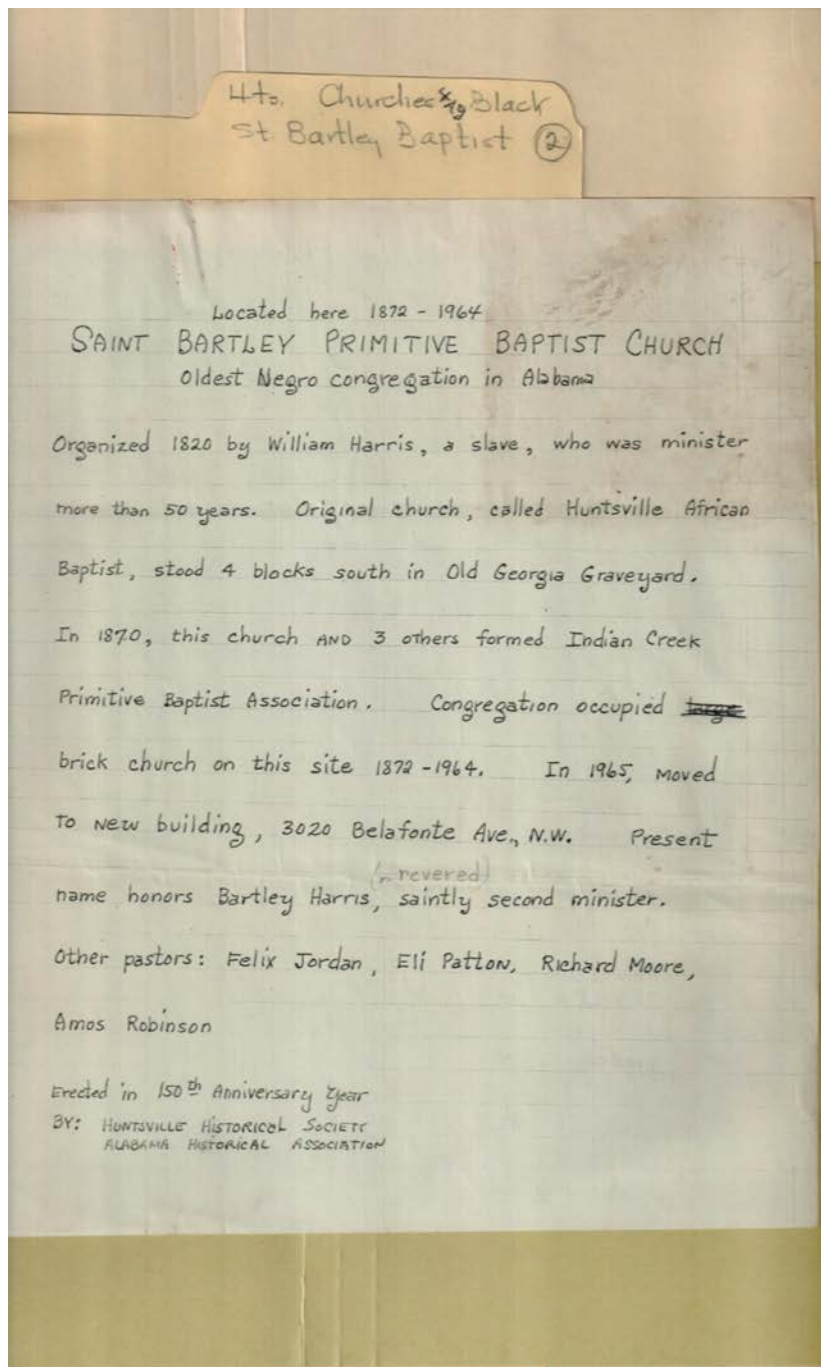 4to. Churches Black
St. Bartley Baptist ②
Located here 1872 - 1964
SAINT BARTLEY PRIMITIVE BAPTIST CHURCH
Oldest Negro congregation in Alabama
Organized 1820 by William Harris, a slave, who was minister
more than 50 years. Original church, called Huntsville African
Baptist, stood 4 blocks south in Old Georgia Graveyard.
In 1870, this church AND 3 others formed Indian Creek
Primitive Baptist Association. Congregation occupied
brick church on this site 1872-1964. In 1965, moved
To New building, 3020 Belafonte Ave., N.W. Present
revered)
name honors Bartley Harris, saintly second minister.
Other pastors: Felix Jordan, Eli Patton, Richard Moore,
Amos Robinson
Erected in 150th Anniversary Year
BY: HUNTSVILLE HISTORICAL SOCIETY
ALABAMA HISTORICAL ASSOCIATION